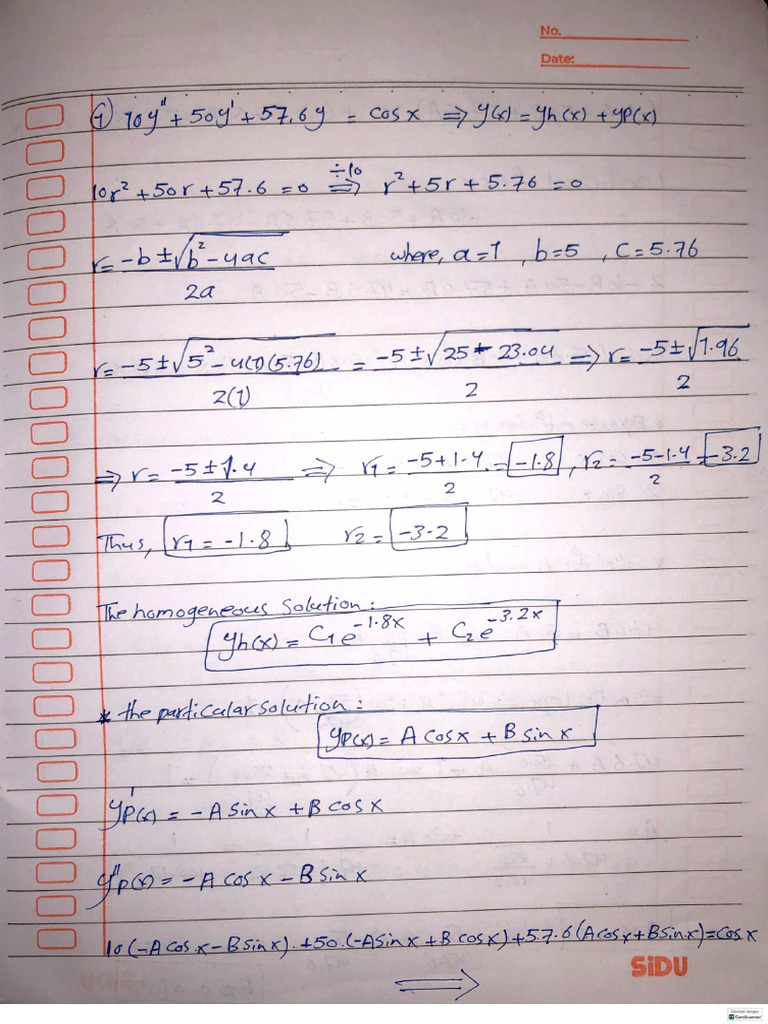 No.
Date:
1) 10y'' + 50y' + 57.6y = cos x ⇒ y(x) = yh(x) + yp(x)
10r² + 50r + 57.6 = 0 ÷10 ⇒ r² + 5r + 5.76 = 0
r = (-b ± √(b² - 4ac)) / 2a where, a = 1, b = 5, C = 5.76
r = (-5 ± √(5² - 4(1)(5.76))) / 2(1) = (-5 ± √(25 - 23.04)) / 2 ⇒ r = (-5 ± √1.96) / 2
⇒ r = (-5 ± 1.4) / 2 ⇒ r1 = (-5 + 1.4) / 2 = -1.8, r2 = (-5 - 1.4) / 2 = -3.2
Thus, r1 = -1.8 r2 = -3.2
The homogeneous Solution:
yh(x) = C1 e^(-1.8x) + C2 e^(-3.2x)
* the particular solution:
yp(x) = A cos x + B sin x
y'p(x) = -A sin x + B cos x
y''p(x) = -A cos x - B sin x
10(-A cos x - B sin x) + 50.(-A sin x + B cos x) + 57.6(A cos x + B sin x) = cos x
SiDU
⇒
CamScanner